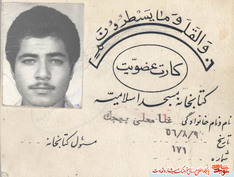 ن والقلم و ما یسطرون
کارت عضویت
کتابخانه مسجد اسلامیه
نام و نام خانوادگی غلامعلی
تاریخ ۵۶/۸/۹
شماره ۱۷۱
مسئول کتابخانه